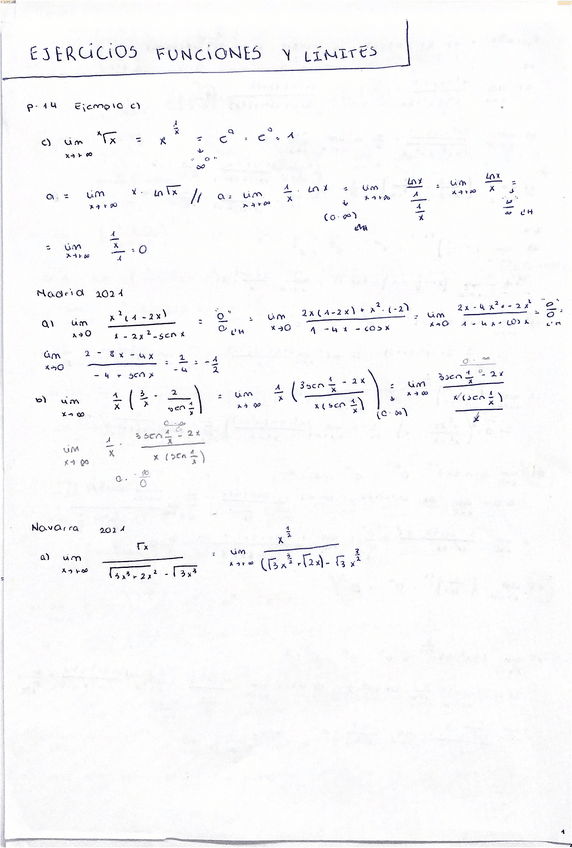 EJERCICIOS FUNCIONES Y LÍMITES
p. 14 Ejemplo c)
c) lim x→+∞ ˣ√x = x^(1/x) = e^a = e^0 = 1
"∞^0"
a = lim x→+∞ x · ln √x // a = lim x→+∞ 1/x · ln x = lim x→+∞ ln x / 1 / 1/x = lim x→+∞ ln x / x =
(0·∞) L'H ∞/∞ L'H
= lim x→+∞ 1/x / 1 = 0
Madrid 2021
a) lim x→0 x²(1-2x) / x - 2x² - sen x = "0/0" L'H = lim x→0 2x(1-2x) + x²·(-2) / 1 - 4x - cos x = lim x→0 2x - 4x² - 2x² / 1 - 4x - cos x = "0/0" L'H
lim x→0 2 - 8x - 4x / -4 + sen x = 2/-4 = -1/2
b) lim x→∞ 1/x (3/x - 2/sen 1/x) = lim x→∞ 1/x (3 sen 1/x - 2x / x (sen 1/x)) = (0·∞) lim x→∞ 3 sen 1/x - 2x / x (sen 1/x) / x
lim x→∞ 1/x · 3 sen 1/x - 2x / x (sen 1/x)
0 · ∞/0
Navarra 2021
a) lim x→+∞ √x / √3x³+2x² - √3x³ = lim x→+∞ x^(1/2) / (√3 x^(3/2) + √2x) - √3 x^(3/2)
1